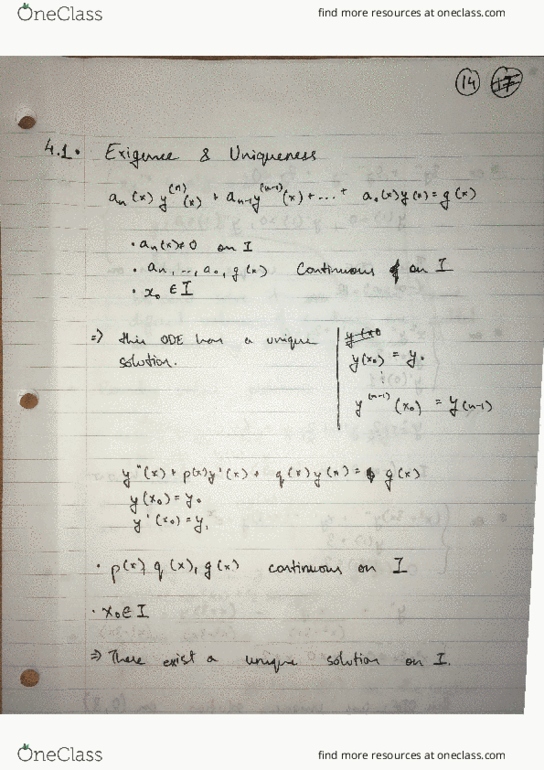 OneClass
find more resources at oneclass.com
14 17
4.1. Exigence & Uniqueness
aₙ(x) y⁽ⁿ⁾(x) + aₙ₋₁y⁽ⁿ⁻¹⁾(x) + ... + a₀(x)y(x) = g(x)
• aₙ(x)≠0 on I
• aₙ, ..., a₀, g(x) Continuous on I
• x₀ ∈ I
⇒ this ODE has a unique solution.
y(x₀) = y₀
⋮
y⁽ⁿ⁻¹⁾(x₀) = y(n-1)
y''(x) + p(x)y'(x) + q(x)y(x) = g(x)
y(x₀) = y₀
y'(x₀) = y₁
• p(x), q(x), g(x) continuous on I
• x₀ ∈ I
⇒ There exist a unique solution on I.
OneClass
find more resources at oneclass.com